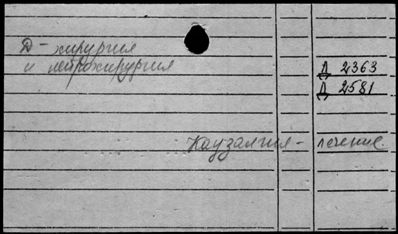 Д - хирургия
и нейрохирургия
Д 2363
Д 2581
Каузалгия - лечение.